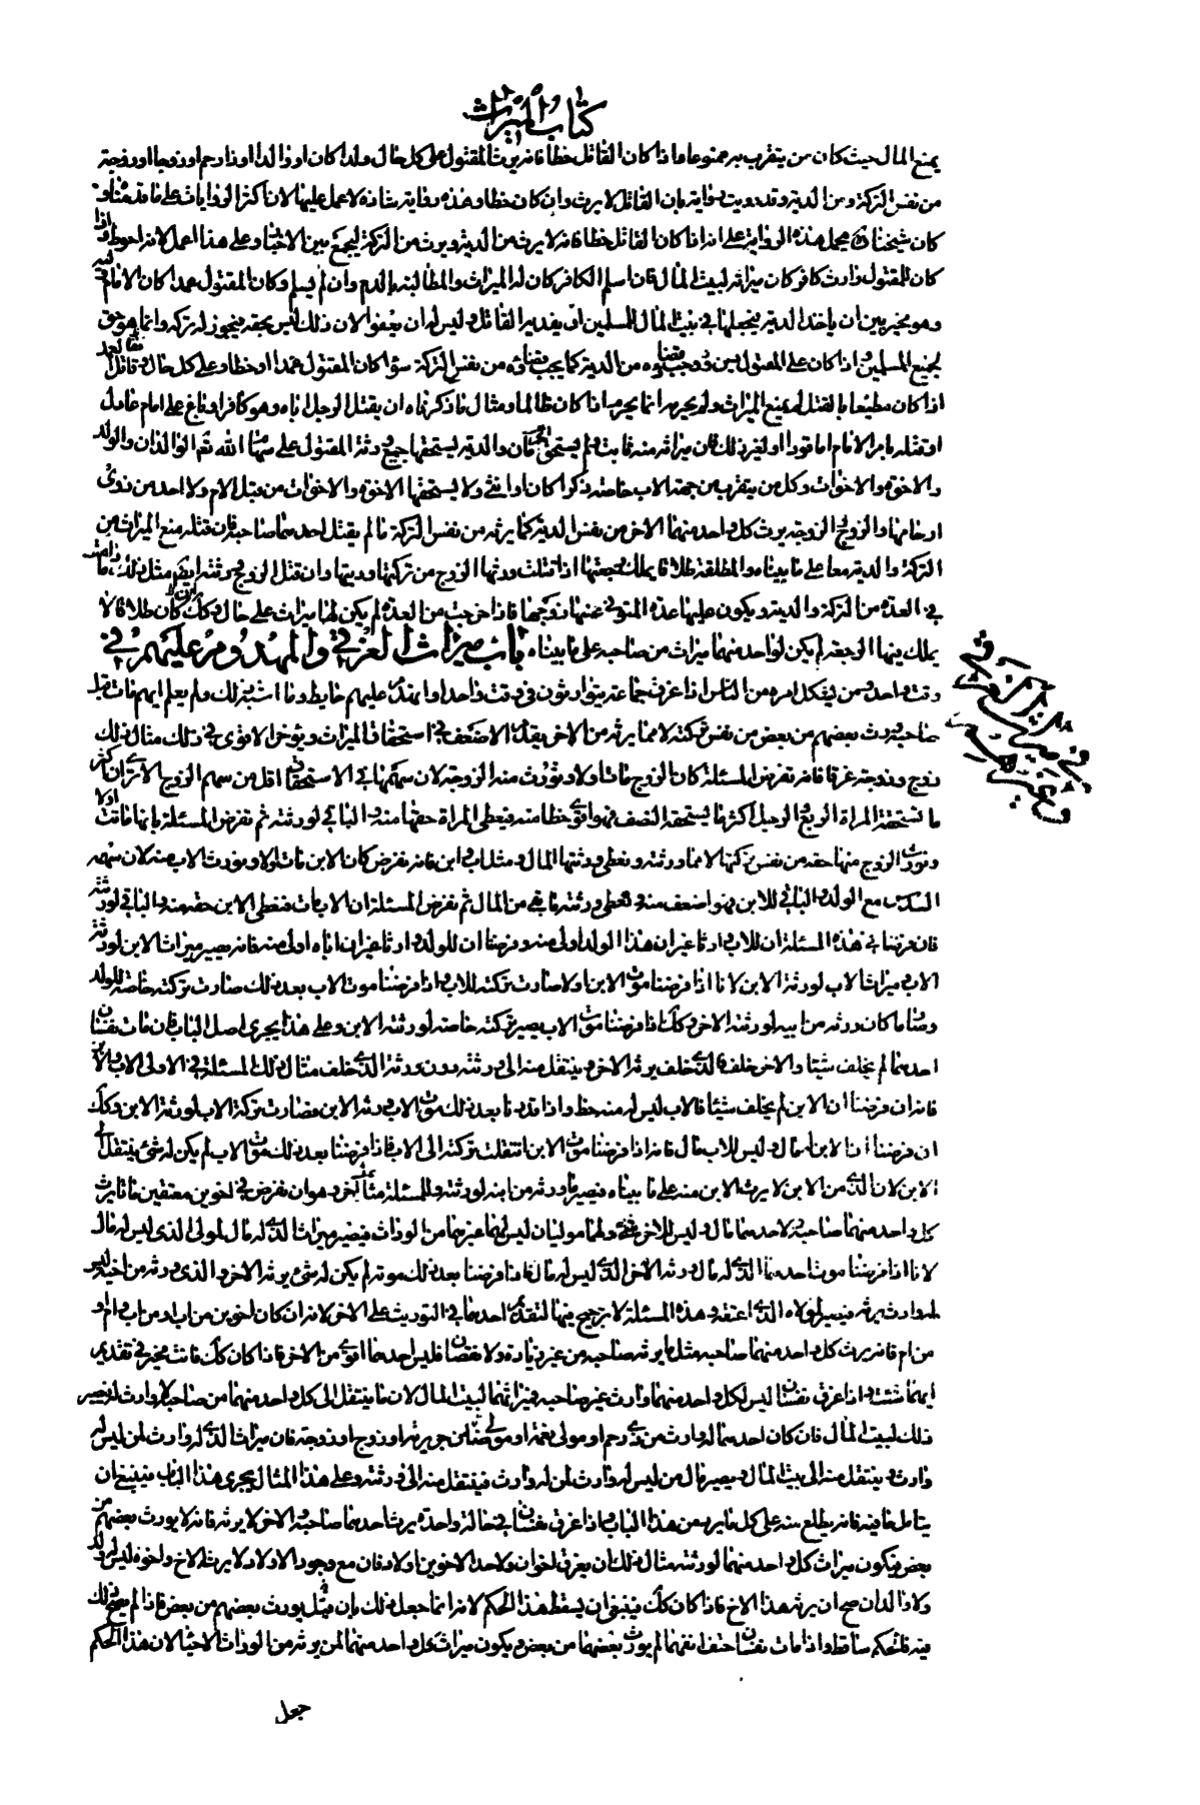 كتاب الميراث
يمنع المال حيث كان من يتقرب به ممنوعا واذا كان القاتل خطا فانه يرث المقتول على كل حال ولدا كان او والدا او ذا رحم او زوجا او زوجة
من نفس التركة ومن الدية وقد رويت رواية بان القاتل لا يرث وان كان خطا وهذه رواية شاذة لا عمل عليها لان اكثر الروايات على ما قدمناه و
كان شيخنا يحمل هذه الرواية على انه اذا كان القاتل خطا فانه لا يرث من الدية ويرث من التركة ليجمع بين الاخبار وعلى هذا اعمل لانه احوط واذا
كان للمقتول وارث كافر كان ميراثه لبيت المال فان اسلم الكافر كان له الميراث والمطالبة بالدم وان لم يسلم وكان المقتول عمدا كان الامام وليه
وهو مخير بين ان ياخذ الدية يجعلها في بيت المال للمسلمين او يقيد به القاتل وليس له ان يعفو لان ذلك ليس بحقه فيجوز له تركه وانما هو حق
لجميع المسلمين واذا كان على المقتول دين وجب قضاؤه من الدية كما يجب قضاؤه من نفس التركة سواء كان المقتول عمدا او خطا وعلى كل حال وقاتل العمد
اذا كان مطيعا بالقتل لم يمنع الميراث ولم يحرمه انما يحرم اذا كان ظالما ومثال ما ذكرناه ان يقتل الرجل اباه وهو كافر او باغ على امام عادل
او قتله بامر الامام اما قودا او لغير ذلك فان ميراثه منه ثابت ولم يستحق الحرمان والدية يستحقها جميع ورثة المقتول على سهام الله تعم الوالدان والولد
والاخوة والاخوات وكل من يتقرب من جهة الاب خاصة ذكرا كان او انثى ولا يستحقها الاخوة والاخوات من قبل الام ولا احد من ذوى
ارحامها والزوج والزوجة يرث كل واحد منهما الاخر من نفس الدية كما يرثه من نفس التركة ما لم يقتل احدهما صاحبه فان قتله منع الميراث من
التركة والدية معا على ما بيناه والمطلقة طلاقا يملك رجعتها اذا قتلت ورثها الزوج من تركتها وديتها وان قتل الزوج ورثته ايضا مثل ذلك ما دامت
في العدة من التركة والدية ويكون عليها عدة المتوفى عنها زوجها فاذا خرجت من العدة لم يكن لها ميراث على حال وكك ان كان طلاقا لا
يملك فيها الرجعة لم يكن لواحد منهما ميراث من صاحبه على ما بيناه باب ميراث الغرقى والمهدوم عليهم في
وقت واحد ومن يشكل امره من الناس اذا غرق جماعة يتوارثون في وقت واحد او انهدم عليهم حايط وما اشبه ذلك ولم يعلم ايهم مات قبل
صاحبه ورث بعضهم من بعض من نفس تركته لا مما يرثه من الاخر يقدم الاضعف في استحقاق الميراث ويؤخر الاقوى في ذلك مثال ذلك
زوج وزوجة غرقا فانه تفرض المسئلة كان الزوج مات اولا وتورث منه الزوجة لان سهمها في الاستحقاق اقل من سهم الزوج الا ترى ان اكثر
ما تستحقه المراة الربع والرجل اكثر ما يستحقه النصف فهو اقوى حظا منه فيعطى المراة حقها منه والباقي لورثته ثم تفرض المسئلة بانها ماتت اولا
وتورث الزوج منها حقه من نفس تركتها لا مما ورثته وتعطى ورثتها المال ومثل اب وابن فانه تفرض كان الابن مات اولا ويورث الاب منه لان سهمه
السدس مع الولد والباقي للابن فهو اضعف منه وتعطى ورثته ما بقي من المال ثم تفرض المسئلة ان الاب مات فتعطى الابن حقه منه والباقي لورثته
فان فرضنا في هذه المسئلة ان للاب وارثا غير ان هذا الولد اولى منه وفرضنا ان للولد وارثا غير ان اباه اولى منه فانه يصير ميراث الابن لورثة
الاب وميراث الاب لورثة الابن لانا اذا فرضنا موت الابن اولا صارت تركته للاب واذا فرضنا موت الاب بعد ذلك صارت تركته خاصة للولد
وصار ما كان ورثه من ابيه لورثته الاخر وكك اذا فرضنا موت الاب يصير تركته خاصة لورثة الابن وعلى هذا يجرى اصل الباب فان مات نفسان
احدهما لم يخلف شيئا والاخر خلف فالذى خلف يرثه الاخر وينتقل منه الى ورثته دون ورثة الذى خلف مثال ذلك المسئلة في الاولى الاب والابن
فانه ان فرضنا ان الابن لم يخلف شيئا فالاب ليس له منه حظ واذا قدرنا بعد ذلك موت الاب ورثه الابن فصارت تركة الاب لورثة الابن وكك
ان فرضنا ان الابن له مال وليس للاب مال فانه اذا فرضنا موت الابن انتقلت تركته الى الاب فاذا فرضنا بعد ذلك موت الاب لم يكن له شئ ينتقل الى
الابن لان الذى من الابن لا يرثه الابن منه على ما بيناه فيصير ما ورثه من ابنه لورثته وللمسئلة مثال آخر وهو ان نفرض في اخوين معتقين ماتا يرث
كل واحد منهما صاحبه ولاحدهما مال وليس للاخر شئ ولهما موليان ليس لهما غيرهما من الوراث فيصير ميراث الذى له مال لمولى الذى ليس له مال
لانا اذا فرضنا موت احدهما الذى له مال ورثه الاخر الذى ليس له مال فاذا فرضنا بعد ذلك موته لم يكن له شئ يرثه الاخر والذى ورثه من اخيه ليس
له وارث يرثه فيصير لمولاه الذى اعتقه وهذه المسئلة لا ترجيح فيها لتقديم احدهما في التوريث على الاخر لانه ان كان اخوين من اب او من اب وام او
من ام فانه يرث كل واحد منهما صاحبه مثل ما يرثه صاحبه من غير زيادة ولا نقصان فليس احدهما اقوى من الاخر فاذا كان كك فانت مخير في تقديم
ايهما شئت واذا غرق نفسان ليس لكل واحد منهما وارث غير صاحبه فميراثهما لبيت المال لان ما ينتقل الى كل واحد منهما من صاحبه لا وارث له فيصير
ذلك لبيت المال فان كان احدهما له وارث من ذى رحم او مولى نعمة او مولى ضامن جريرته او زوج او زوجة فان ميراث الذى له وارث لمن ليس له
وارث وينتقل منه الى بيت المال ويصير مال من ليس له وارث لمن له وارث فينتقل منه الى ورثته وعلى هذا المثال يجرى هذا الباب فينبغى ان
يتامل ما فيه فانه يطلع منه على كل ما يرد من هذا الباب واذا غرق نفسان في حالة واحدة يرث احدهما صاحبه والاخر لا يرثه فانه لا يورث بعضهم من
بعض ويكون ميراث كل واحد منهما لورثته مثال ذلك ان يغرق اخوان ولاحد الاخوين اولاد فان مع وجود الاولاد لا يرثه الاخ واخوه ليس له ولد
ولا والدان صح ان يرثه هذا الاخ فاذا كان كك فينبغى ان يسقط هذا الحكم لانه انما جعل ذلك بان يورث بعضهم من بعض فاذا لم يصح ذلك
فيه فالحكم ساقط واذا مات نفسان حتف انفهما لم يورث بعضهما من بعض ويكون ميراث كل واحد منهما لمن يرثه من الوراث الاحياء لان هذا الحكم
جعل